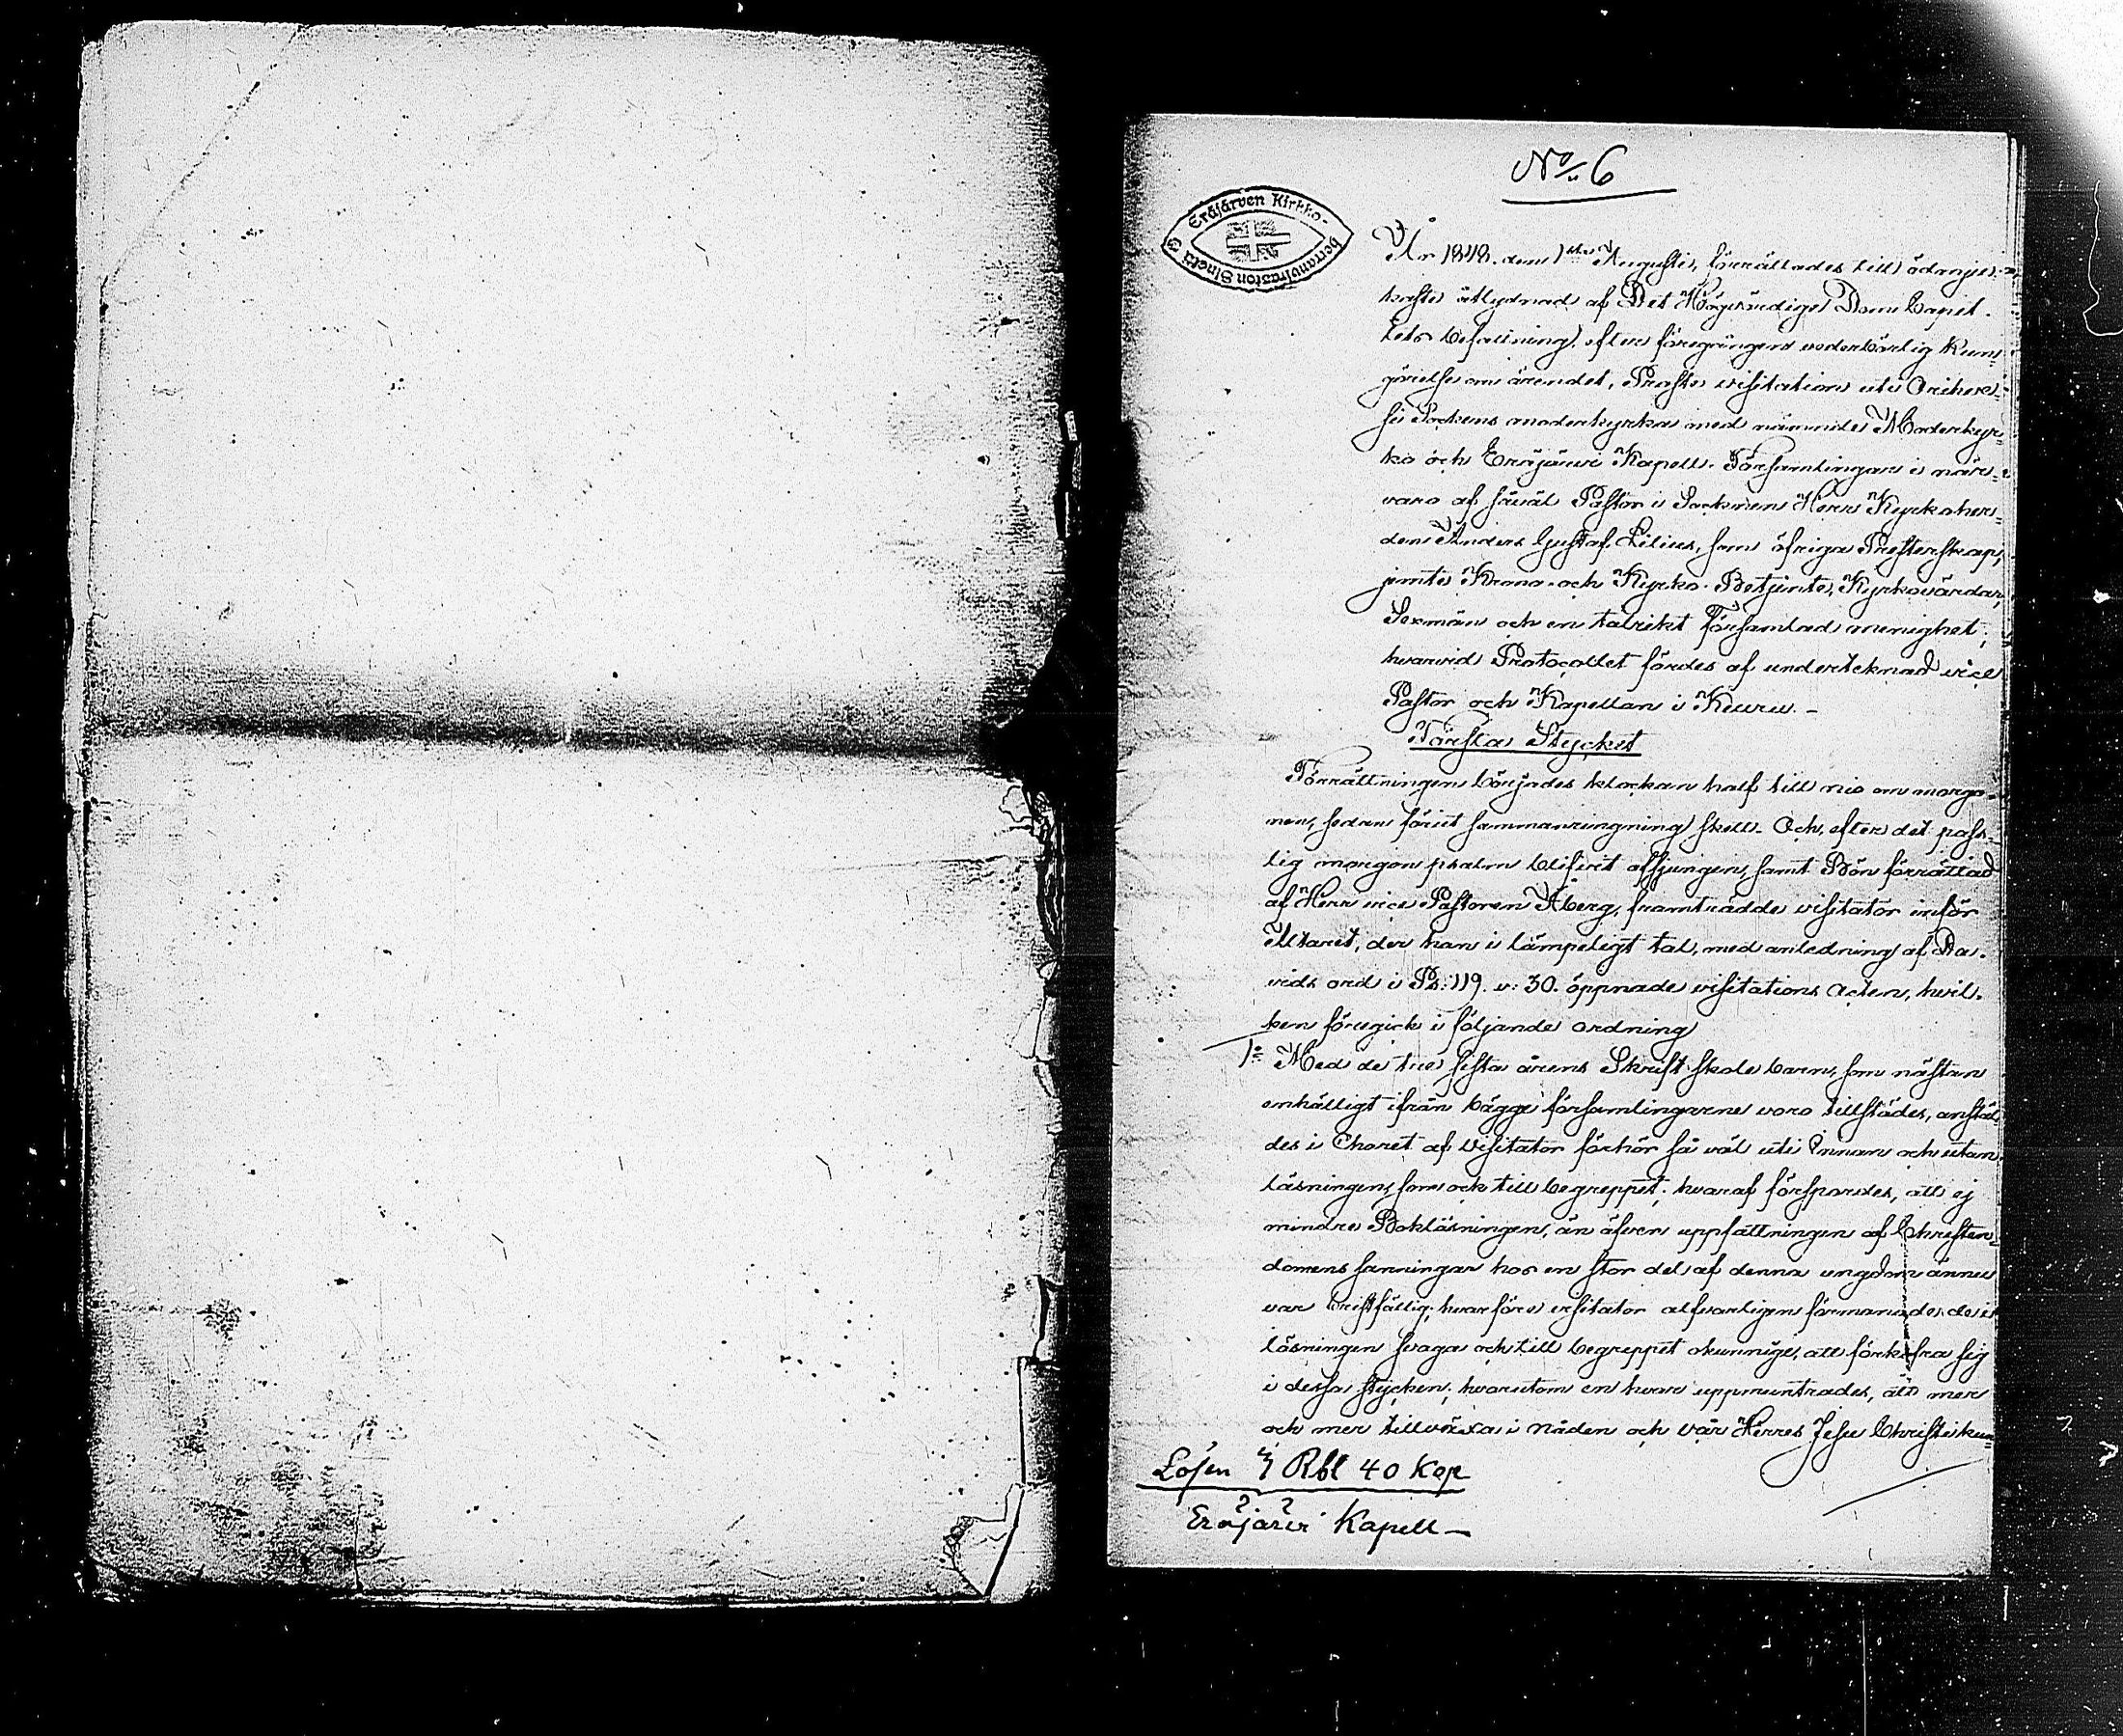 No 6
Eräjärven Kirkko-
herranviraston Sinetti
År 1848. den 1sta Augusti, förrättades till ödmju-
kaste åtlydnad af Det Högvördige Dom Capit-
lets befallning, efter föregången vederbörlig kun-
görelse om ärendet, Prosts visitation uti Orihves-
si Sockens moderkyrka med nämnde Moderkyr-
ko och Eräjärvi Kapells Församlingar i när-
varo af såväl Pastor i Socknen Herr Kyrkoher-
den Anders Gustaf Lilius, som öfriga Presterskap,
jemte Krono- och Kyrko-Betjente, Kyrkovärdar,
Sexmän och en talrikt församlad menighet;
hvarvid Protocollet fördes af undertecknad vice
Pastor och Kapellan i Kuru. -
Första Stycket
Förrättningen börjades klockan half till nio om morgo-
nen, sedan förut sammanringning skett. Och, efter det pass-
lig morgon psalm blifvit afsjungen, samt Bön förrättad
af Herr vice Pastoren Åberg, framträdde visitator inför
Altaret, der han i lämpeligt tal, med anledning af Da-
vids ord i Ps: 119. v: 30. öppnade visitations Acten, hvil-
ken föregick i följande ordning
1:o Med de tre sista årens Skrift-skole barn, som nästan
enhälligt ifrån bägge församlingarne voro tillstädes, anstäl-
des i Choret af Visitator förhör så väl uti Innan och utan
läsningen, som ock till begreppet; hvaraf förspordes, att ej
mindre Bokläsningen, än äfven uppfattningen af Christen-
domens sanningar hos en stor del af denna ungdom ännu
var bristfällig; hvarföre visitator alfvarligen förmanade de i
läsningen svaga och till begreppet okunnige, att förkofra sig
i dessa stycken; hvarutom en hvar uppmuntrades, att mer
och mer tillväxa i nåden och vår Herres Jesu Christi kun-
Lösen Rbl 40 Kop
Eräjärvi Kapell -